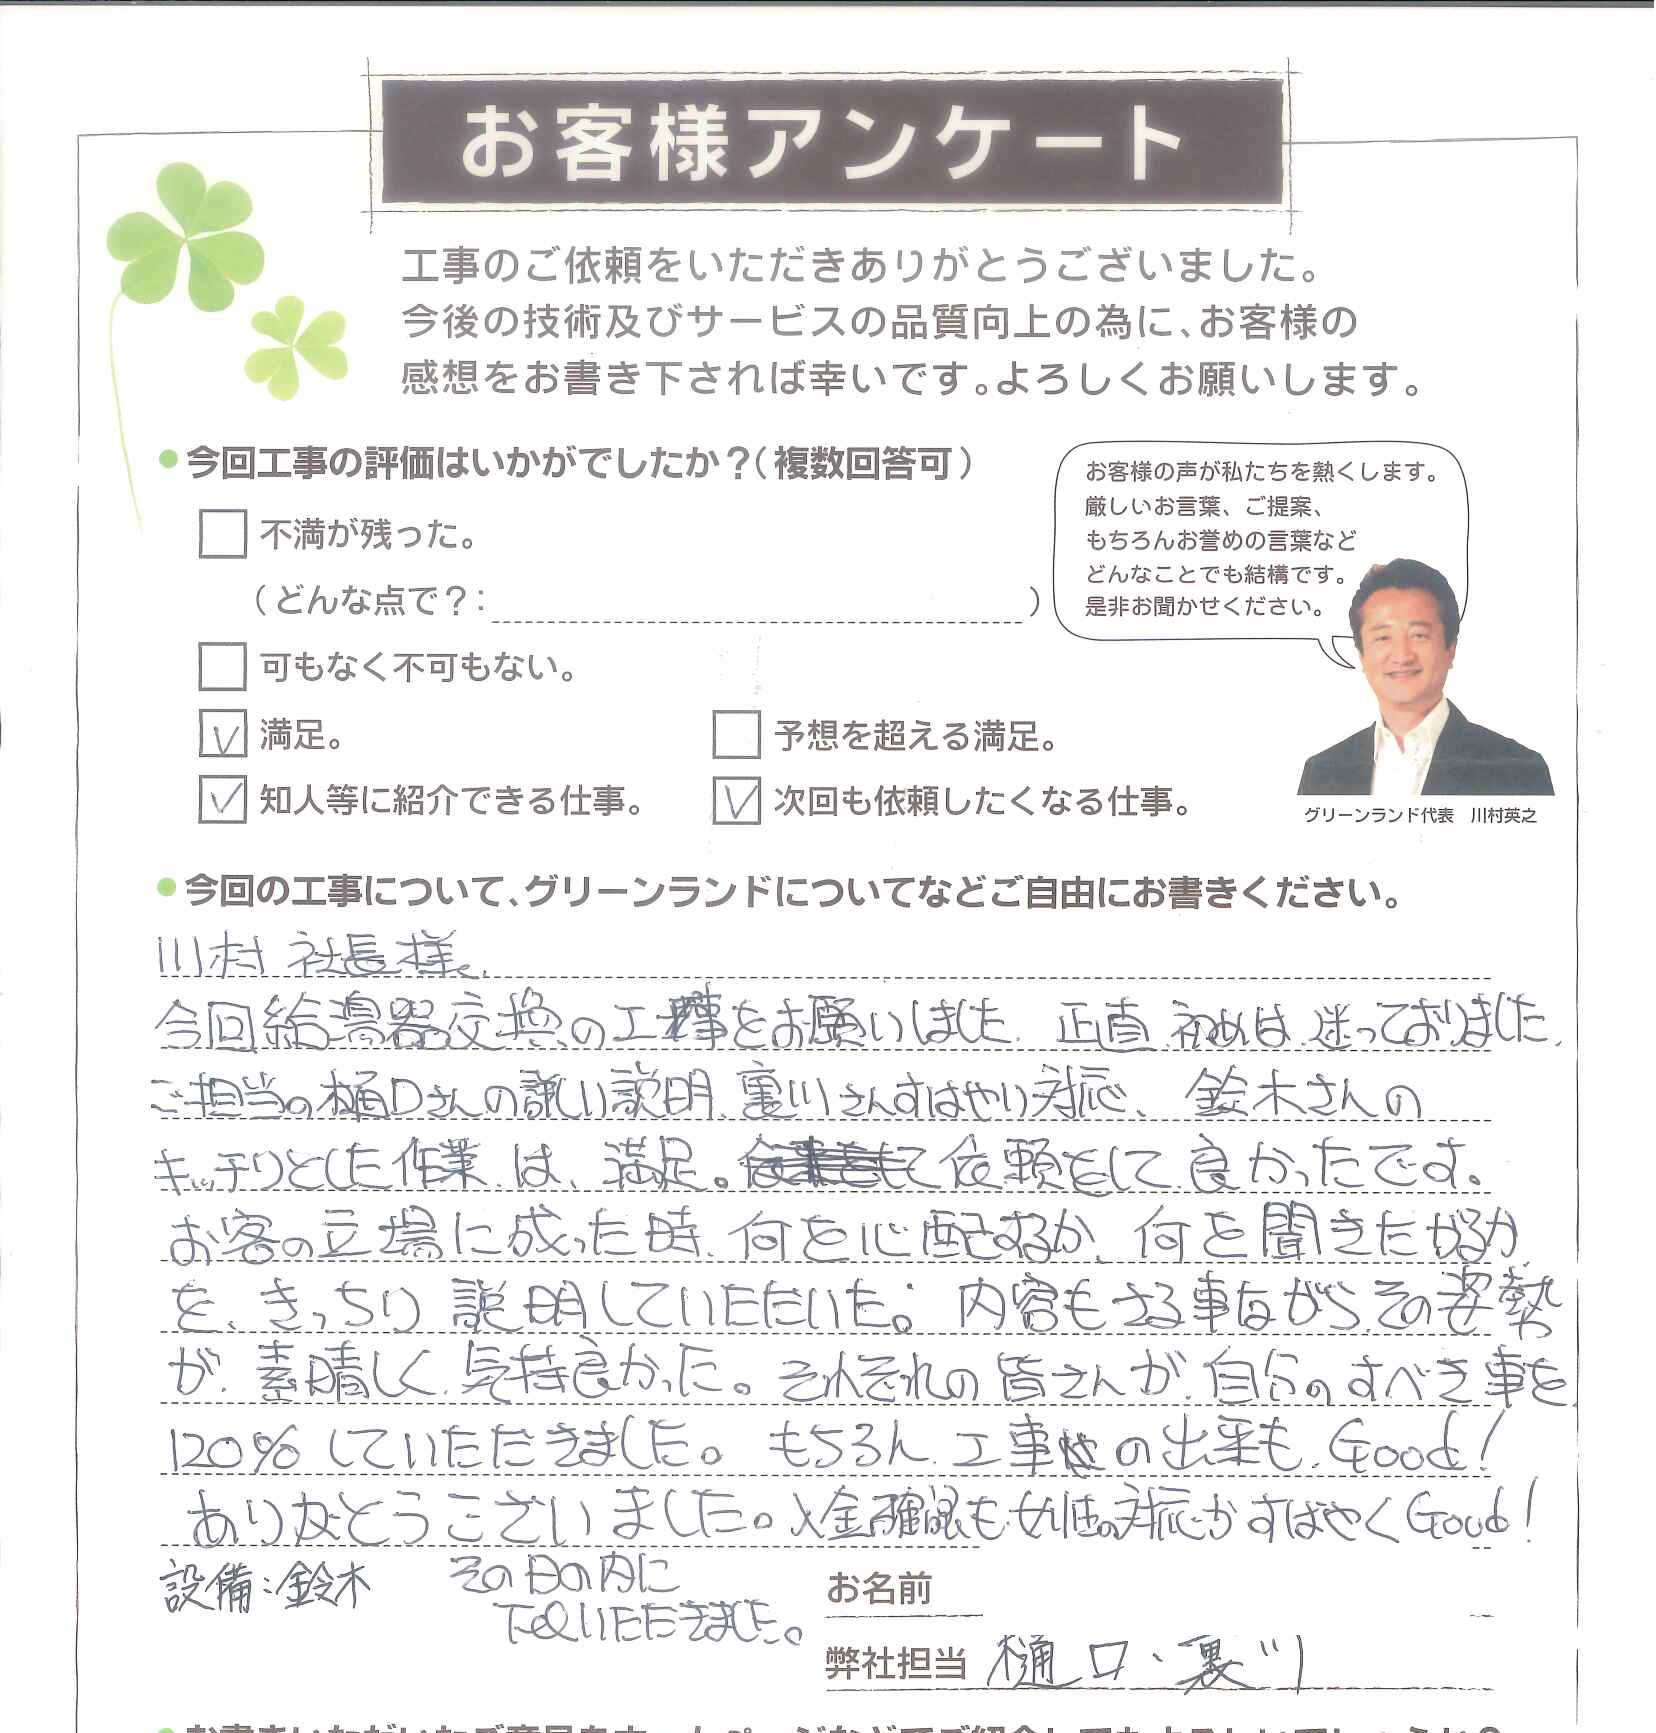 お客様アンケート
工事のご依頼をいただきありがとうございました。
今後の技術及びサービスの品質向上の為に、お客様の
感想をお書き下されば幸いです。よろしくお願いします。
今回工事の評価はいかがでしたか？(複数回答可)
不満が残った。
(どんな点で？: )
可もなく不可もない。
満足。
予想を超える満足。
知人等に紹介できる仕事。
次回も依頼したくなる仕事。
お客様の声が私たちを熱くします。
厳しいお言葉、ご提案、
もちろんお誉めの言葉など
どんなことでも結構です。
是非お聞かせください。
グリーンランド代表 川村英之
今回の工事について、グリーンランドについてなどご自由にお書きください。
川村 社長様、
今回給湯器交換の工事をお願いしました、正直、初めは、迷っておりました、
ご担当の樋口さんの詳しい説明、裏川さんすばやい対応、鈴木さんの
キッチリとした作業、は、満足。依頼をして、良かったです。
お客の立場に成った時、何を心配するか、何を聞きたがるか
を、きっちり説明していただいた。内容もさる事ながら、その姿勢
が、素晴しく、気持良かった。それぞれの皆さんが、自分のすべき事を、
120%していただきました。もちろん、工事の出来も、Good!
ありがとうございました。入金確認も、女性の対応がすばやくGood!
その日の内に
Telいただきました。
設備:鈴木
お名前
弊社担当 樋口、裏川
お書きいただいたご意見をホームページなどでご紹介してもよろしいでしょうか？